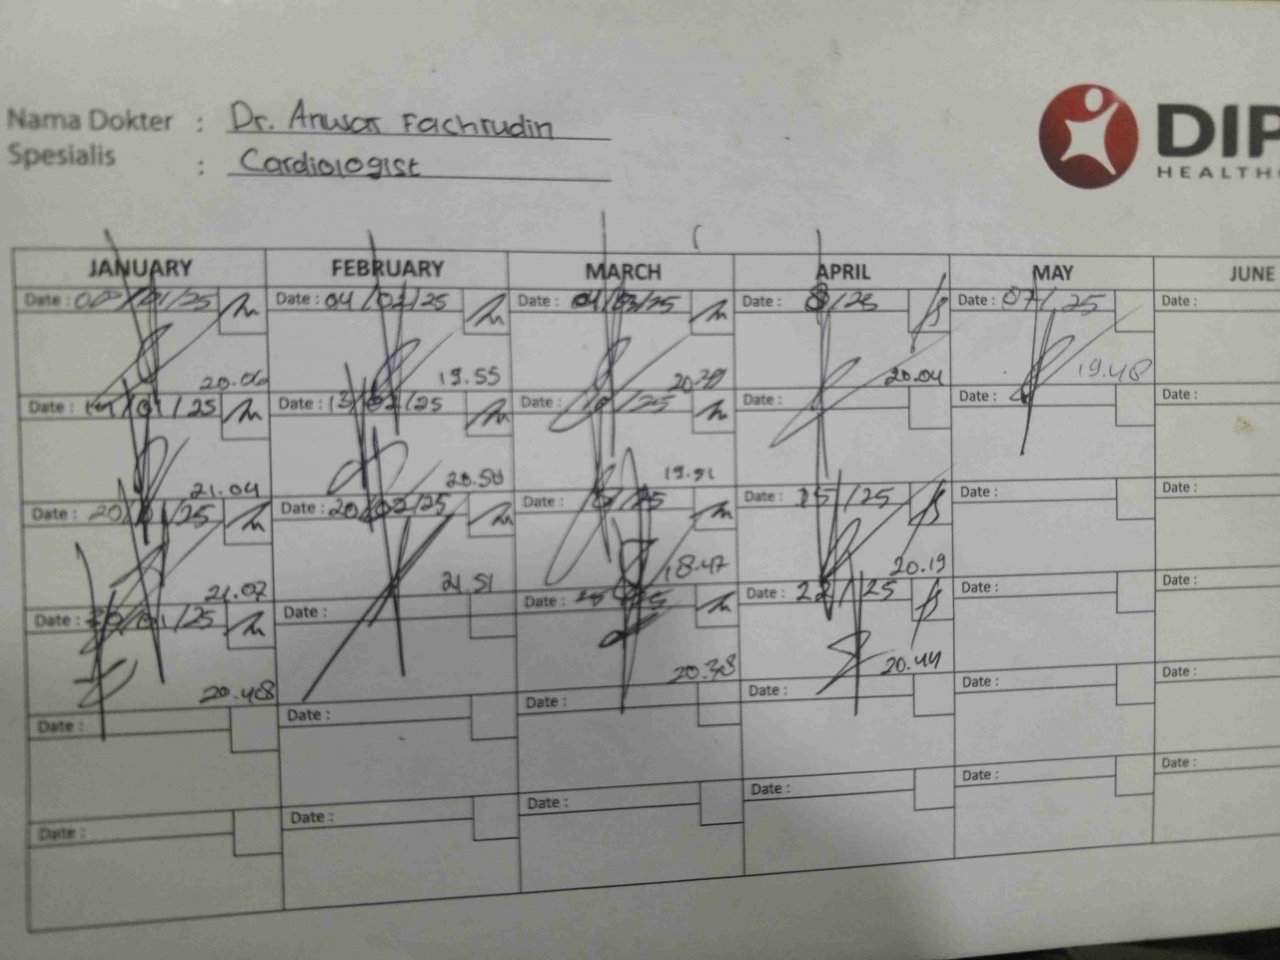 Nama Dokter : Dr. Anwar Fachrudin
Spesialis : Cardiologist
DIP
HEALTH
JANUARY FEBRUARY MARCH APRIL MAY JUNE
Date : /01/25 Date : 04/02/25 Date : 04/03/25 Date : 8/25 Date : 07/ 25 Date :
20.06 19.55 20.39 20.04 19.48
Date : /01/25 Date : 13/02/25 Date : /25 Date : Date : Date :
21.04 20.50 19.51
Date : 20/ /25 Date : 20/02/25 Date : /25 Date : 15/25 Date : Date :
21.07 21.51 18.47 20.19
Date : /01/25 Date : Date : Date : 22/25 Date : Date :
20.48 20.38 20.44
Date : Date : Date : Date : Date : Date :
Date : Date : Date : Date : Date : Date :